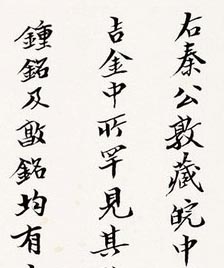 右秦公敦藏皖中
吉金中所罕見其
鍾銘及敦銘均有